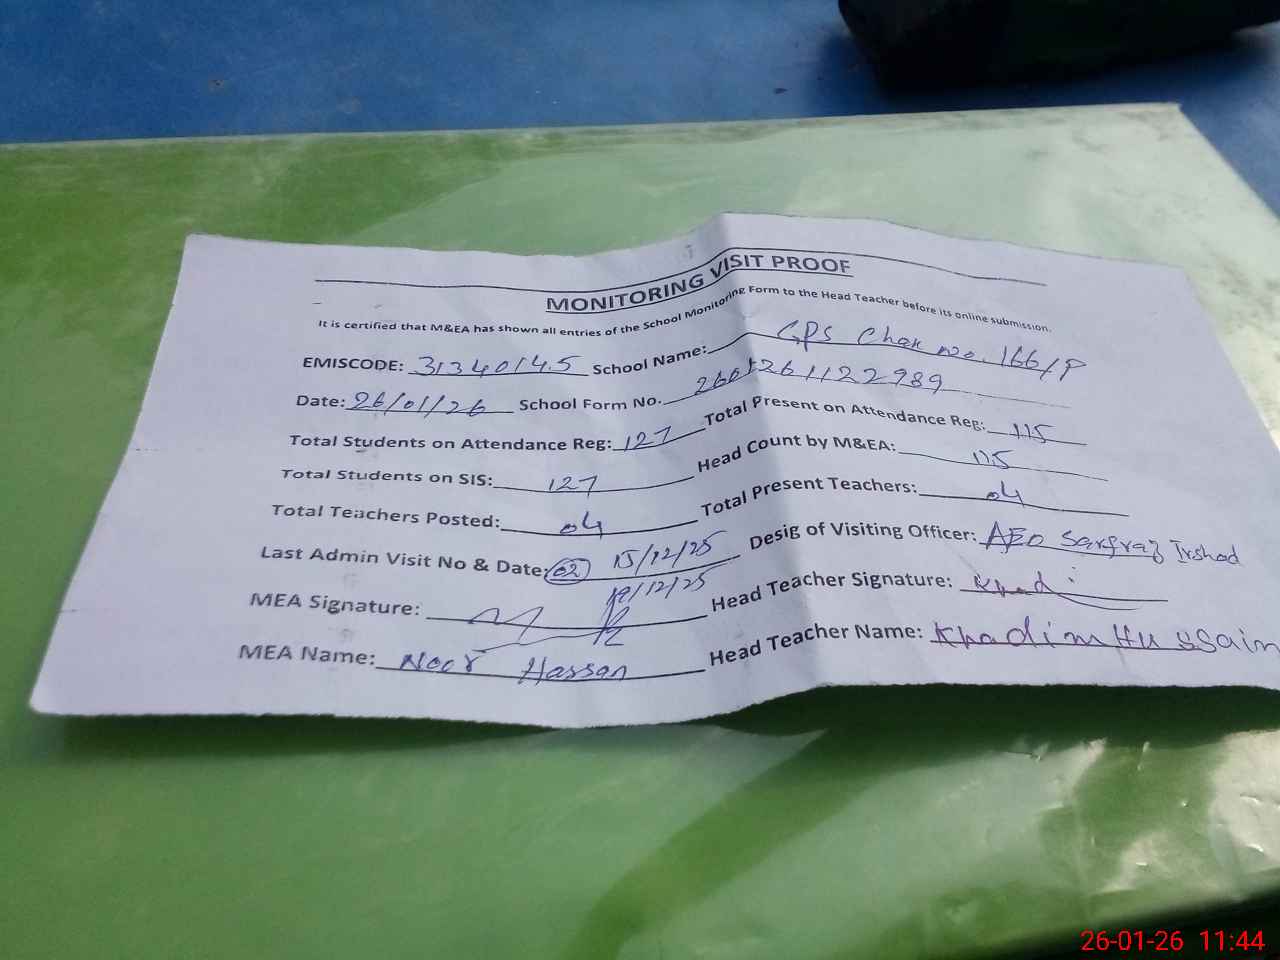 MONITORING VISIT PROOF
It is certified that M&EA has shown all entries of the School Monitoring Form to the Head Teacher before its online submission.
EMISCODE: 31340145 School Name: GPS Chak No. 166/P
Date: 26/01/26 School Form No. 2601261122989
Total Students on Attendance Reg: 127 Total Present on Attendance Reg: 115
Total Students on SIS: 127 Head Count by M&EA: 115
Total Teachers Posted: 04 Total Present Teachers: 04
Last Admin Visit No & Date: 02 15/12/25 Desig of Visiting Officer: AEO Sarfraz Irshad
/12/25
MEA Signature: Head Teacher Signature:
MEA Name: Noor Hassan Head Teacher Name: Khadim Hussain
26-01-26 11:44